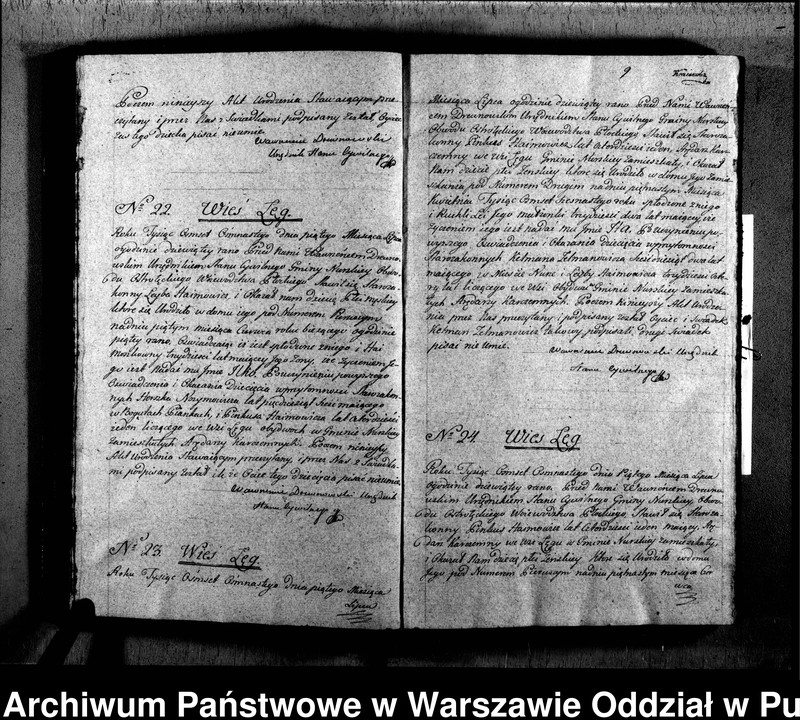 Poczem ninieyszy Akt Urodzenia Stawaiącym prze
czytany i przez Nas z Świadkami podpisany został, Oyciec
zaś tego dziecka pisać nieumie.
Wawrzeniec Drewnowski
Urzędnik Stanu Cywilnego
No 22. Wieś Łęg.
Roku Tysiąc Ośmset Ośmnastego dnia piątego Miesiąca Lipca
ogodzinie dziewiątey rano Przed Nami Wawrzeńcem Drewno
wskim Urzędnikiem Stanu Cywilnego Gminy Nurskiey Obwo
du Ostrołęckiego Woiewództwa Płockiego Stawił się Staroza
konny Leyba Haimowicz i Okazał nam dziecię Płci męskiey
które się Urodziło w domu iego pod Numerem Pierwszym
nadniu piątym miesiąca Czerwca roku bieżącego ogodzinie
piątey rano, Oświadczaiąc iż iest spłodzone zniego i Hai
lat maiącey Jego żony, że życzeniem Je
go iest Nadać mu Jmie Ilko. Pouczynieniu powyższego
Oświadczenia i Okazania Dziecięcia wprzytomności Starozakon
nych Herszka Noymowicza lat pięćdziesiąt maiącego
w Pankach, i Pinkusa Haimowicza lat czterdzieści
ieden liczącego we Wsi Łęgu obydwóch w Gminie Nurskiey
zamieszkałych Arędarzy Karczemnych. Poczem ninieyszy
Akt Urodzenia Stawaiącym przeczytany, i przez Nas z Świadka
mi podpisany został, iż że Oyciec tego dziecięcia pisać nieumie
Wawrzeniec Drewnowski Urzędnik
Stanu Cywilnego
No 23. Wieś Łęg
Roku Tysiąc Ośmset Ośmnastego Dnia piątego Miesiąca
Lipca
9
Miesiąca Lipca ogodzinie dziewiątey rano Przed Nami Wawrzeń
cem Drewnowskim Urzędnikiem Stanu Cywilnego Gminy Nurskiey
Obwodu Ostrołęckiego Woiewództwa Płockiego Stawił się Staroza
konny Pinkus Haimowicz lat Czterdzieści ieden, Arędarz Kar
czemny we Wsi Łęgu Gminie Nurskiey zamieszkały, i Okazał
Nam dziecię płci żenskiey które się Urodziło w domu Jego zamie
szkania pod Numerem Drugim nadniu piętnastym Miesiąca
Kwietnia Tysiąc Ośmset roku spłodzone zniego
i Ruchli Lei Jego małżonki trzydzieści dwa lat maiącey, iż
życzeniem iego iest nadać mu Jmie Pouczynieniu po
wyższego Oświadczenia i Okazania Dziecięcia wprzytomności
Starozakonnych Kelmana Zelmanowicza sześćdziesiąt dwa lat
maiącego, w Mieście Nurze i Leyby Haimowicza trzydzieści czte
ry lat liczącego we Wsi obydwa Gminie Nurskiey zamieszka
łych Arędarzy Karczemnych. Poczem Ninieyszy Akt Urodze
nia przez Nas przeczytany i podpisany został Oyciec i Świadek
Kelman Zelmanowicz takowy podpisali, drugi Świadek
pisać nie Umie.
Wawrzeniec Drewnowski Urzędnik
Stanu Cywilnego
No 24. Wieś Łęg
Roku Tysiąc Ośmset Ośmnastego Dnia Piątego Miesiąca Lipca
Ogodzinie dziewiątey rano, Przed Nami Wawrzeńcem Drewno
wskim Urzędnikiem Stanu Cywilnego Gminy Nurskiey, Obwo
du Ostrołęckiego Woiewództwa Płockiego, Stawił się Staroza
konny Pinkus Haimowicz lat Czterdzieści ieden maiący, Arę
darz Karczemny we Wsi Łęgu w Gminie Nurskiey zamieszkały,
i Okazał Nam dziecię płci żenskiey które się Urodziło wdomu
Jego pod Numerem Pierwszym nadniu piętnastym miesiąca Czer
wca
Archiwum Państwowe w Warszawie Oddział w Pu